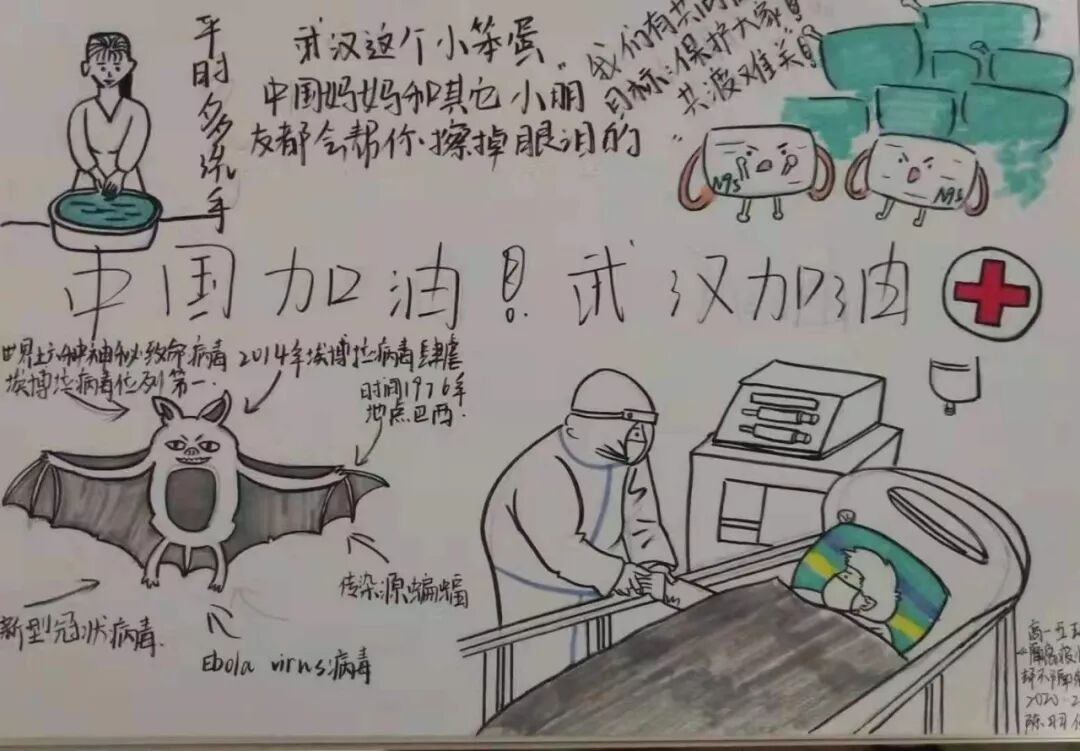 平时多洗手
武汉这个小笨蛋
中国妈妈和其它小朋
友都会帮你擦掉眼泪的
"我们有共同
目标：保护大家！
共渡难关！"
N95
N95
中国加油！武汉加油
世界上六种神秘致命病毒
埃博拉病毒位列第一.
2014年埃博拉病毒肆虐
时间1976年
地点巴西.
传染源蝙蝠
新型冠状病毒.
Ebola virns:病毒
高一五
隔离
却不隔
2020.2
陈羽